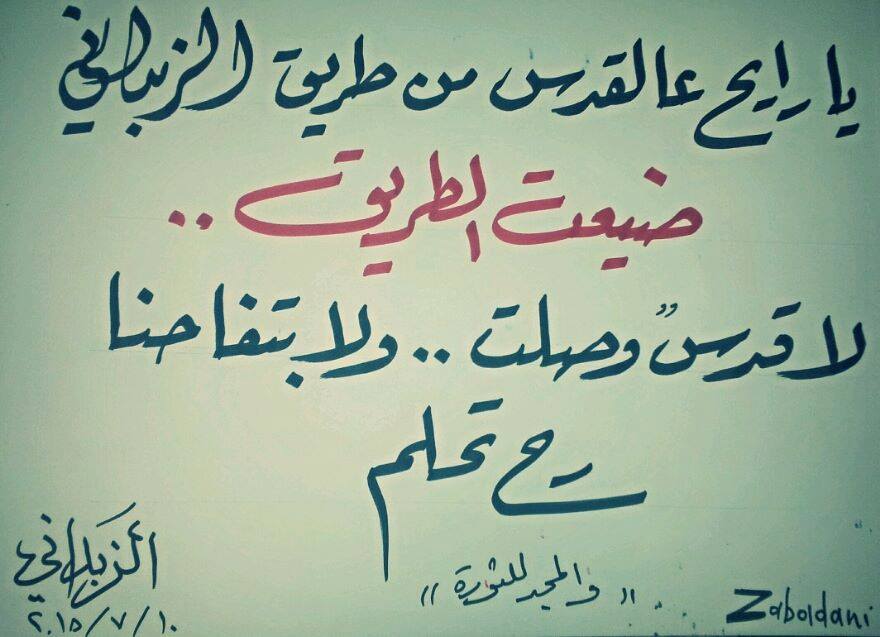 يا رايح عالقدس من طريق الزبداني
ضيعت الطريق ..
لا قدسٌ وصلت .. ولا بتفاحنا
رح تحلم
"والمجد للثورة"
الزبداني
٢٠١٥/٧/١٠
Zabaldani